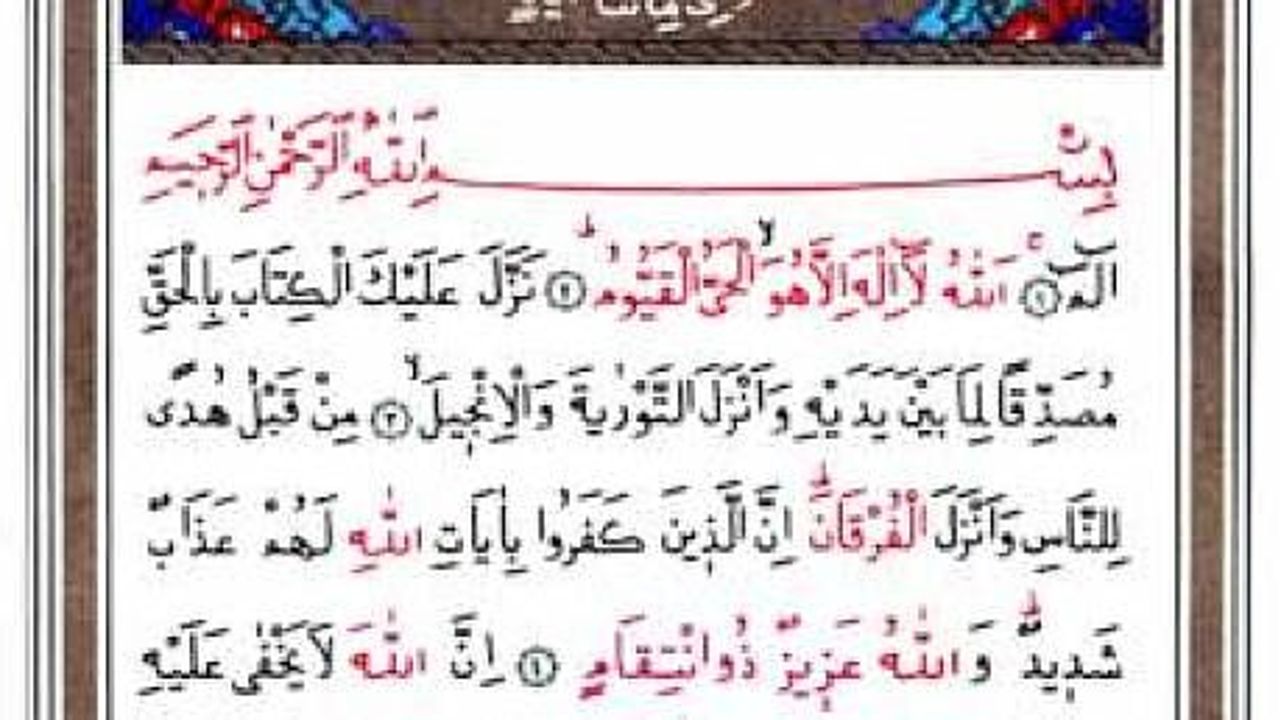 بِسْمِ اللّٰهِ الرَّحْمٰنِ الرَّحِيمِ
الٓمٓ ۚ ﴿١﴾ اَللّٰهُ لَٓا اِلٰهَ اِلَّا هُوَۙ الْحَيُّ الْقَيُّومُۜ ﴿٢﴾ نَزَّلَ عَلَيْكَ الْكِتَابَ بِالْحَقِّ
مُصَدِّقًا لِمَا بَيْنَ يَدَيْهِ وَاَنْزَلَ التَّوْرٰيةَ وَالْاِنْجِيلَۙ ﴿٣﴾ مِنْ قَبْلُ هُدًى
لِلنَّاسِ وَاَنْزَلَ الْفُرْقَانَۜ اِنَّ الَّذِينَ كَفَرُوا بِاٰيَاتِ اللّٰهِ لَهُمْ عَذَابٌ
شَدِيدٌۜ وَاللّٰهُ عَزِيزٌ ذُو انْتِقَامٍ ﴿٤﴾ اِنَّ اللّٰهَ لَا يَخْفٰى عَلَيْهِ